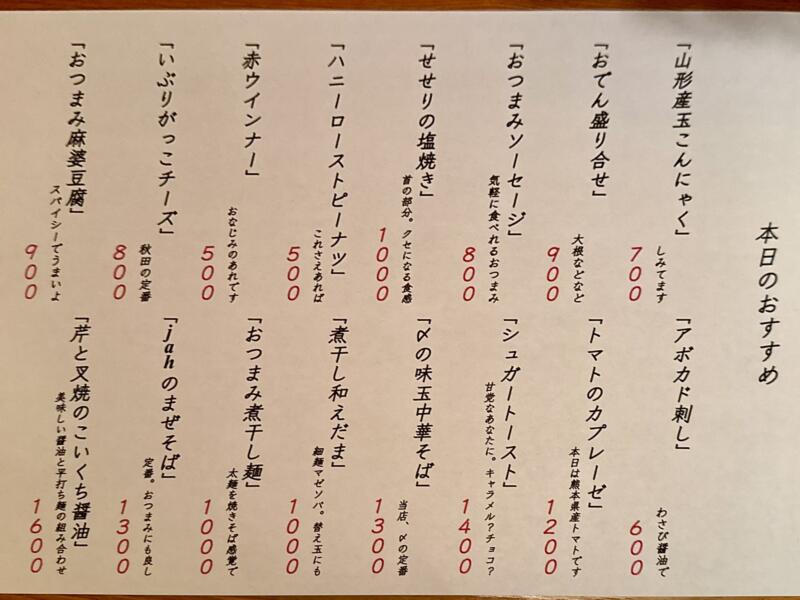 本日のおすすめ
「山形産玉こんにゃく」
しみてます
700
「おでん盛り合せ」
大根などなど
900
「おつまみソーセージ」
気軽に食べれるおつまみ
800
「せせりの塩焼き」
首の部分。クセになる食感
1000
「ハニーローストピーナツ」
これさえあれば
500
「赤ウインナー」
おなじみのあれです
500
「いぶりがっこチーズ」
秋田の定番
800
「おつまみ麻婆豆腐」
スパイシーでうまいよ
900
「アボカド刺し」
わさび醤油で
600
「トマトのカプレーゼ」
本日は熊本県産トマトです
1200
「シュガートースト」
甘党なあなたに。キャラメル?チョコ?
1400
「〆の味玉中華そば」
当店、〆の定番
1300
「煮干し和えだま」
細麺マゼソバ。替え玉にも
1000
「おつまみ煮干し麺」
太麺を焼きそば感覚で
1000
「jahのまぜそば」
定番。おつまみにも良し
1300
「芹と叉焼のこいくち醤油」
美味しい醤油と平打ち麺の組み合わせ
1600